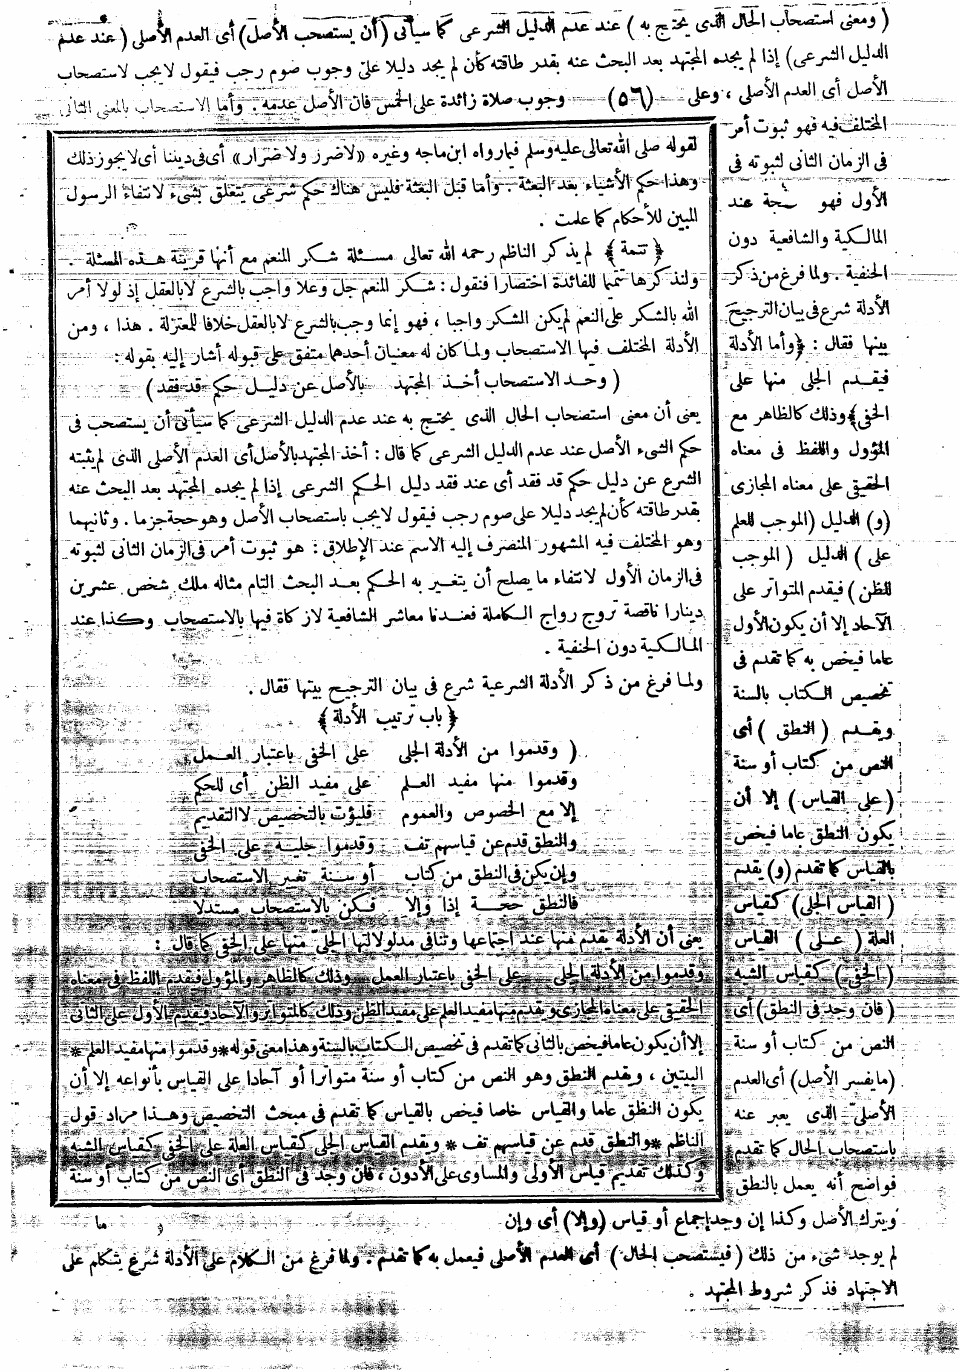 ( ومعنى استصحاب الحال الذى يحتج به ) عند عدم الدليل الشرعى كما سيأتى (أن يستصحب الأصل) أى العدم الأصلى (عند عدم
الدليل الشرعى) إذا لم يجده المجتهد بعد البحث عنه بقدر طاقته كأن لم يجد دليلا على وجوب صوم رجب فيقول لا يجب لاستصحاب
الأصل أى العدم الأصلى ، وعلى (٥٦) وجوب صلاة زائدة على الخمس فان الأصل عدمه . وأما الاستصحاب بالمعنى الثانى
المختلف فيه فهو ثبوت أمر
فى الزمان الثانى لثبوته فى
الأول فهو حجة عند
المالكية والشافعية دون
الحنفية . ولما فرغ من ذكر
الأدلة شرع فى بيان الترجيح
بينها فقال : ﴿وأما الأدلة
فيقدم الجلى منها على
الخفى﴾ وذلك كالظاهر مع
المؤول واللفظ فى معناه
الحقيقى على معناه المجازى
(و) الدليل (الموجب للعلم
على ) الدليل ( الموجب
للظن ) فيقدم المتواتر على
الآحاد إلا أن يكون الأول
عاما فيخص به كما تقدم فى
تخصيص الكتاب بالسنة
ويقدم ( النطق ) أى
النص من كتاب أو سنة
( على القياس ) إلا أن
يكون النطق عاما فيخص
بالقياس كما تقدم (و) يقدم
( القياس الجلى ) كقياس
العلة ( على ) القياس
( الخفى ) كقياس الشبه
( فان وجد فى النطق) أى
النص من كتاب أو سنة
(ما يفسر الأصل) أى العدم
الأصلى الذى يعبر عنه
باستصحاب الحال كما تقدم
فواضح أنه يعمل بالنطق
ويترك الأصل وكذا إن وجد إجماع أو قياس (وإلا) أى وإن
لم يوجد شىء من ذلك ( فيستصحب الحال ) أى العدم الأصلى فيعمل به كما تقدم . ولما فرغ من الكلام على الأدلة شرع يتكلم على
الاجتهاد فذكر شروط المجتهد .
لقوله صلى الله تعالى عليه وسلم فيما رواه ابن ماجه وغيره «لا ضرر ولا ضرار» أى فى ديننا أى لا يجوز ذلك
وهذا حكم الأشياء بعد البعثة . وأما قبل البعثة فليس هناك حكم شرعى يتعلق بشىء لانتفاء الرسول
المبين للأحكام كما علمت .
﴿ تتمة ﴾ لم يذكر الناظم رحمه الله تعالى مسئلة شكر المنعم مع أنها قرينة هذه المسئلة .
ولنذكرها تتميما للفائدة اختصارا فنقول : شكر المنعم جل وعلا واجب بالشرع لا بالعقل إذ لولا أمر
الله بالشكر على النعم لم يكن الشكر واجبا ، فهو إنما وجب بالشرع لا بالعقل خلافا للمعتزلة . هذا ، ومن
الأدلة المختلف فيها الاستصحاب ولما كان له معنيان أحدهما متفق على قبوله أشار إليه بقوله :
( وحد الاستصحاب أخذ المجتهد بالأصل عن دليل حكم قد فقد )
يعنى أن معنى استصحاب الحال الذى يحتج به عند عدم الدليل الشرعى كما سيأتى أن يستصحب فى
حكم الشىء الأصل عند عدم الدليل الشرعى كما قال : أخذ المجتهد بالأصل أى العدم الأصلى الذى لم يثبته
الشرع عن دليل حكم قد فقد أى عند فقد دليل الحكم الشرعى إذا لم يجده المجتهد بعد البحث عنه
بقدر طاقته كأن لم يجد دليلا على صوم رجب فيقول لا يجب باستصحاب الأصل وهو حجة جزما . وثانيهما
وهو المختلف فيه المشهور المنصرف إليه الاسم عند الإطلاق : هو ثبوت أمر فى الزمان الثانى لثبوته
فى الزمان الأول لانتفاء ما يصلح أن يتغير به الحكم بعد البحث التام مثاله ملك شخص عشرين
دينارا ناقصة تروج رواج الكاملة فعندنا معاشر الشافعية لا زكاة فيها بالاستصحاب وكذا عند
المالكية دون الحنفية .
ولما فرغ من ذكر الأدلة الشرعية شرع فى بيان الترجيح بينها فقال .
﴿ باب ترتيب الأدلة ﴾
( وقدموا من الأدلة الجلى على الخفى باعتبار العمل
وقدموا منها مفيد العلم على مفيد الظن أى للحكم
إلا مع الخصوص والعموم فليؤت بالتخصيص لا التقديم
والنطق قدم عن قياسهم تف وقدموا جليه على الخفى
وإن يكن فى النطق من كتاب أو سنة تغير الاستصحاب
فالنطق حجة إذا وإلا فكن بالاستصحاب مستدلا
يعنى أن الأدلة يقدم منها عند اجتماعها وتنافى مدلولاتها الجلى منها على الخفى كما قال :
وقدموا من الأدلة الجلى على الخفى باعتبار العمل وذلك كالظاهر والمؤول فتقدم اللفظ فى معناه
الحقيقى على معناه المجازى وتقدم منها مفيد العلم على مفيد الظن وذلك كالمتواتر والآحاد فيقدم الأول على الثانى
إلا أن يكون عاما فيخص بالثانى كما تقدم فى تخصيص الكتاب بالسنة وهذا معنى قوله * وقدموا منها مفيد العلم *
البيتين ، ويقدم النطق وهو النص من كتاب أو سنة متواترا أو آحادا على القياس بأنواعه إلا أن
يكون النطق عاما والقياس خاصا فيخص بالقياس كما تقدم فى مبحث التخصيص وهذا مراد قول
الناظم * والنطق قدم عن قياسهم تف * ويقدم القياس الجلى كقياس العلة على الخفى كقياس الشبه
وكذلك تقديم قياس الأولى والمساوى على الأدون ، فان وجد فى النطق أى النص من كتاب أو سنة
ما